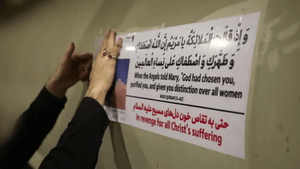 وَإِذْ قَالَتِ الْمَلَائِكَةُ يَا مَرْيَمُ إِنَّ اللَّهَ اصْطَفَاكِ
وَطَهَّرَكِ وَاصْطَفَاكِ عَلَى نِسَاءِ الْعَالَمِينَ
When the Angels told Mary, "God had chosen you,
purified you, and given you distinction over all women
حتی به تقاص خون دل‌های مسیح علیه السلام
In revenge for all Christ's suffering